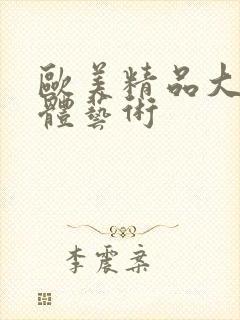 歐美精品大
體藝術
李震案